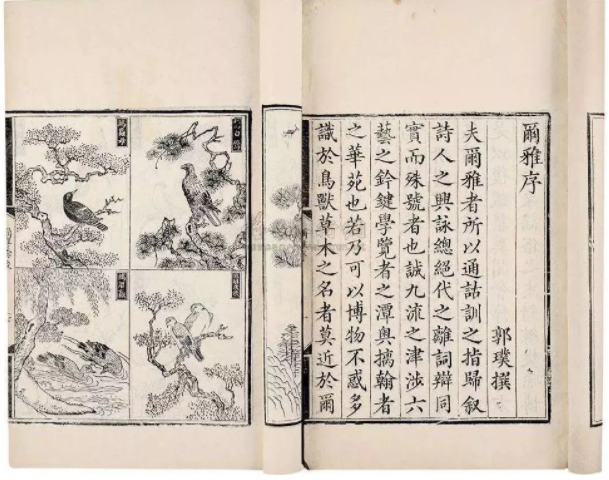 爾雅序
郭璞撰
夫爾雅者所以通詁訓之指歸叙
詩人之興詠總絕代之離詞辯同
實而殊號者也誠九流之津涉六
藝之鈐鍵學覽者之潭奧摛翰者
之華苑也若乃可以博物不惑多
識於鳥獸草木之名者莫近於爾